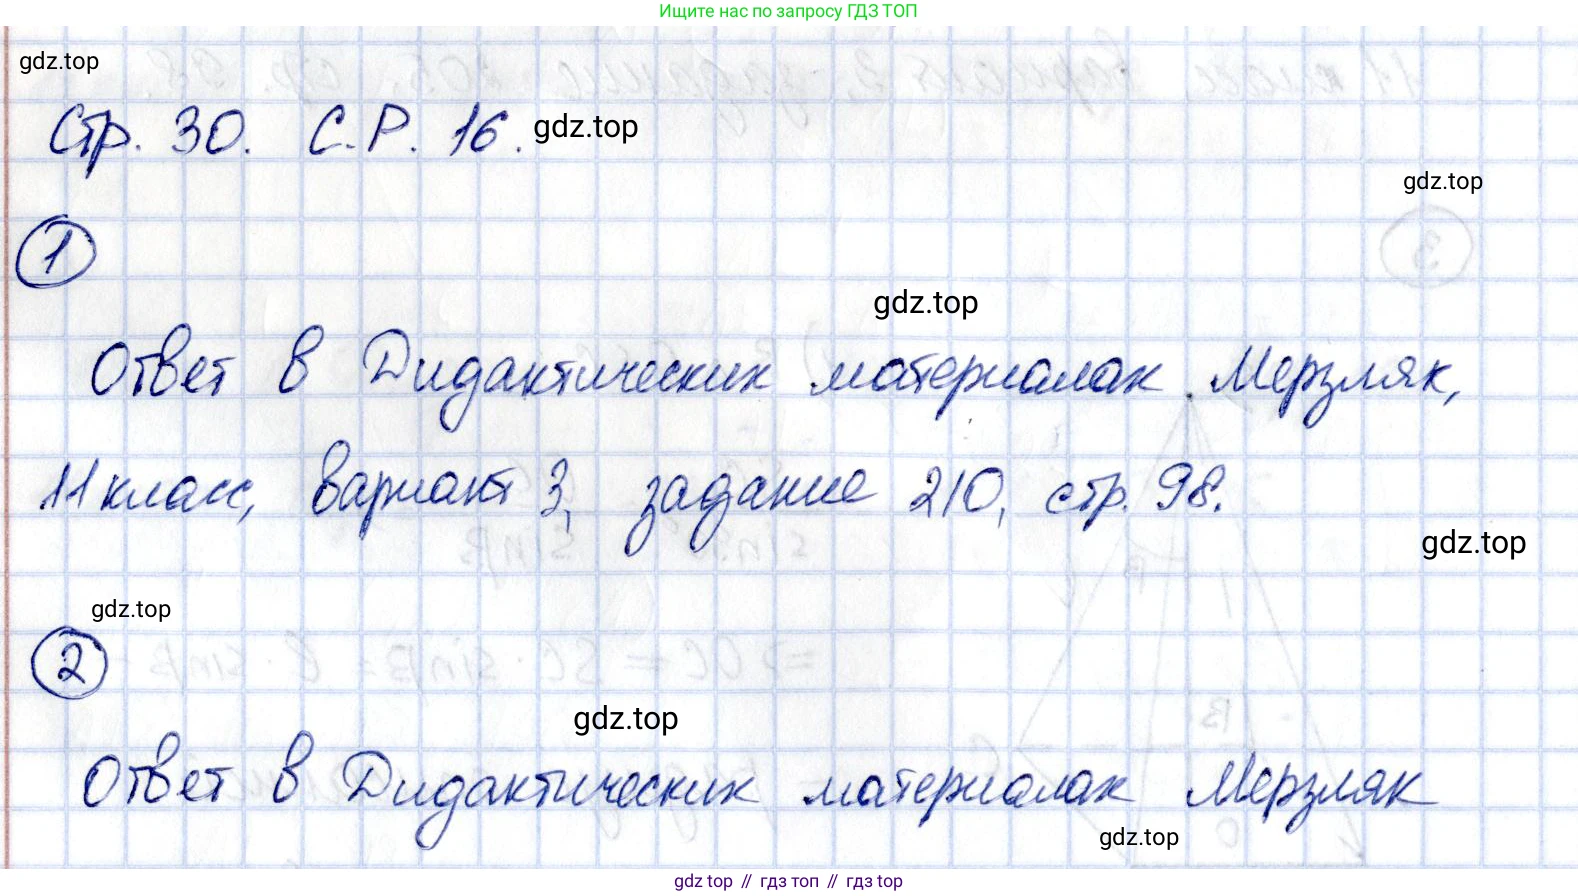 Ищите нас по запросу ГДЗ ТОП
gdz.top
Стр. 30. С.Р. 16. gdz.top
gdz.top
1
gdz.top
Ответ в Дидактических материалах Мерзляк,
11 класс, вариант 3, задание 210, стр. 98.
gdz.top
gdz.top
2
gdz.top
Ответ в Дидактических материалах Мерзляк
gdz.top
gdz.top // гдз топ // гдз top